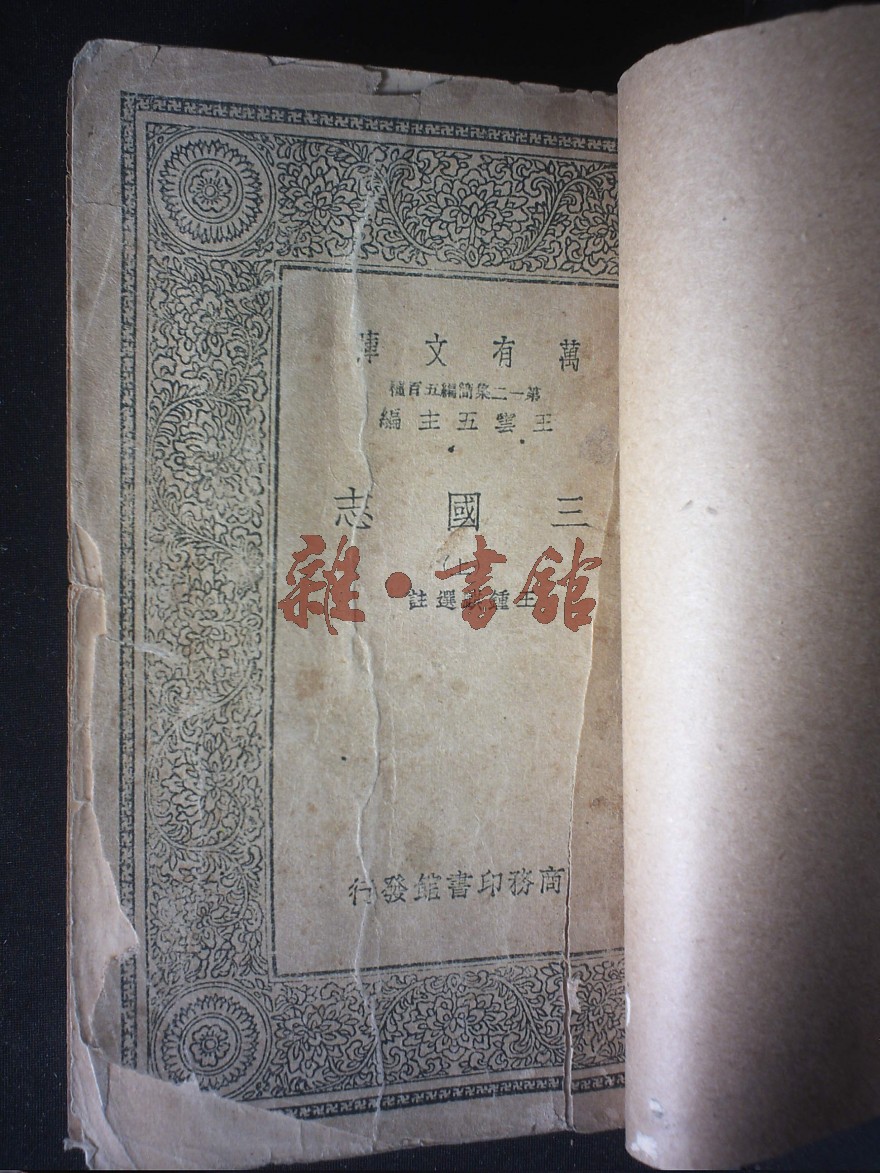 萬有文庫
第一二集簡編五百種
王雲五主編
三國志
王鍾麒選註
雜·書館
商務印書館發行